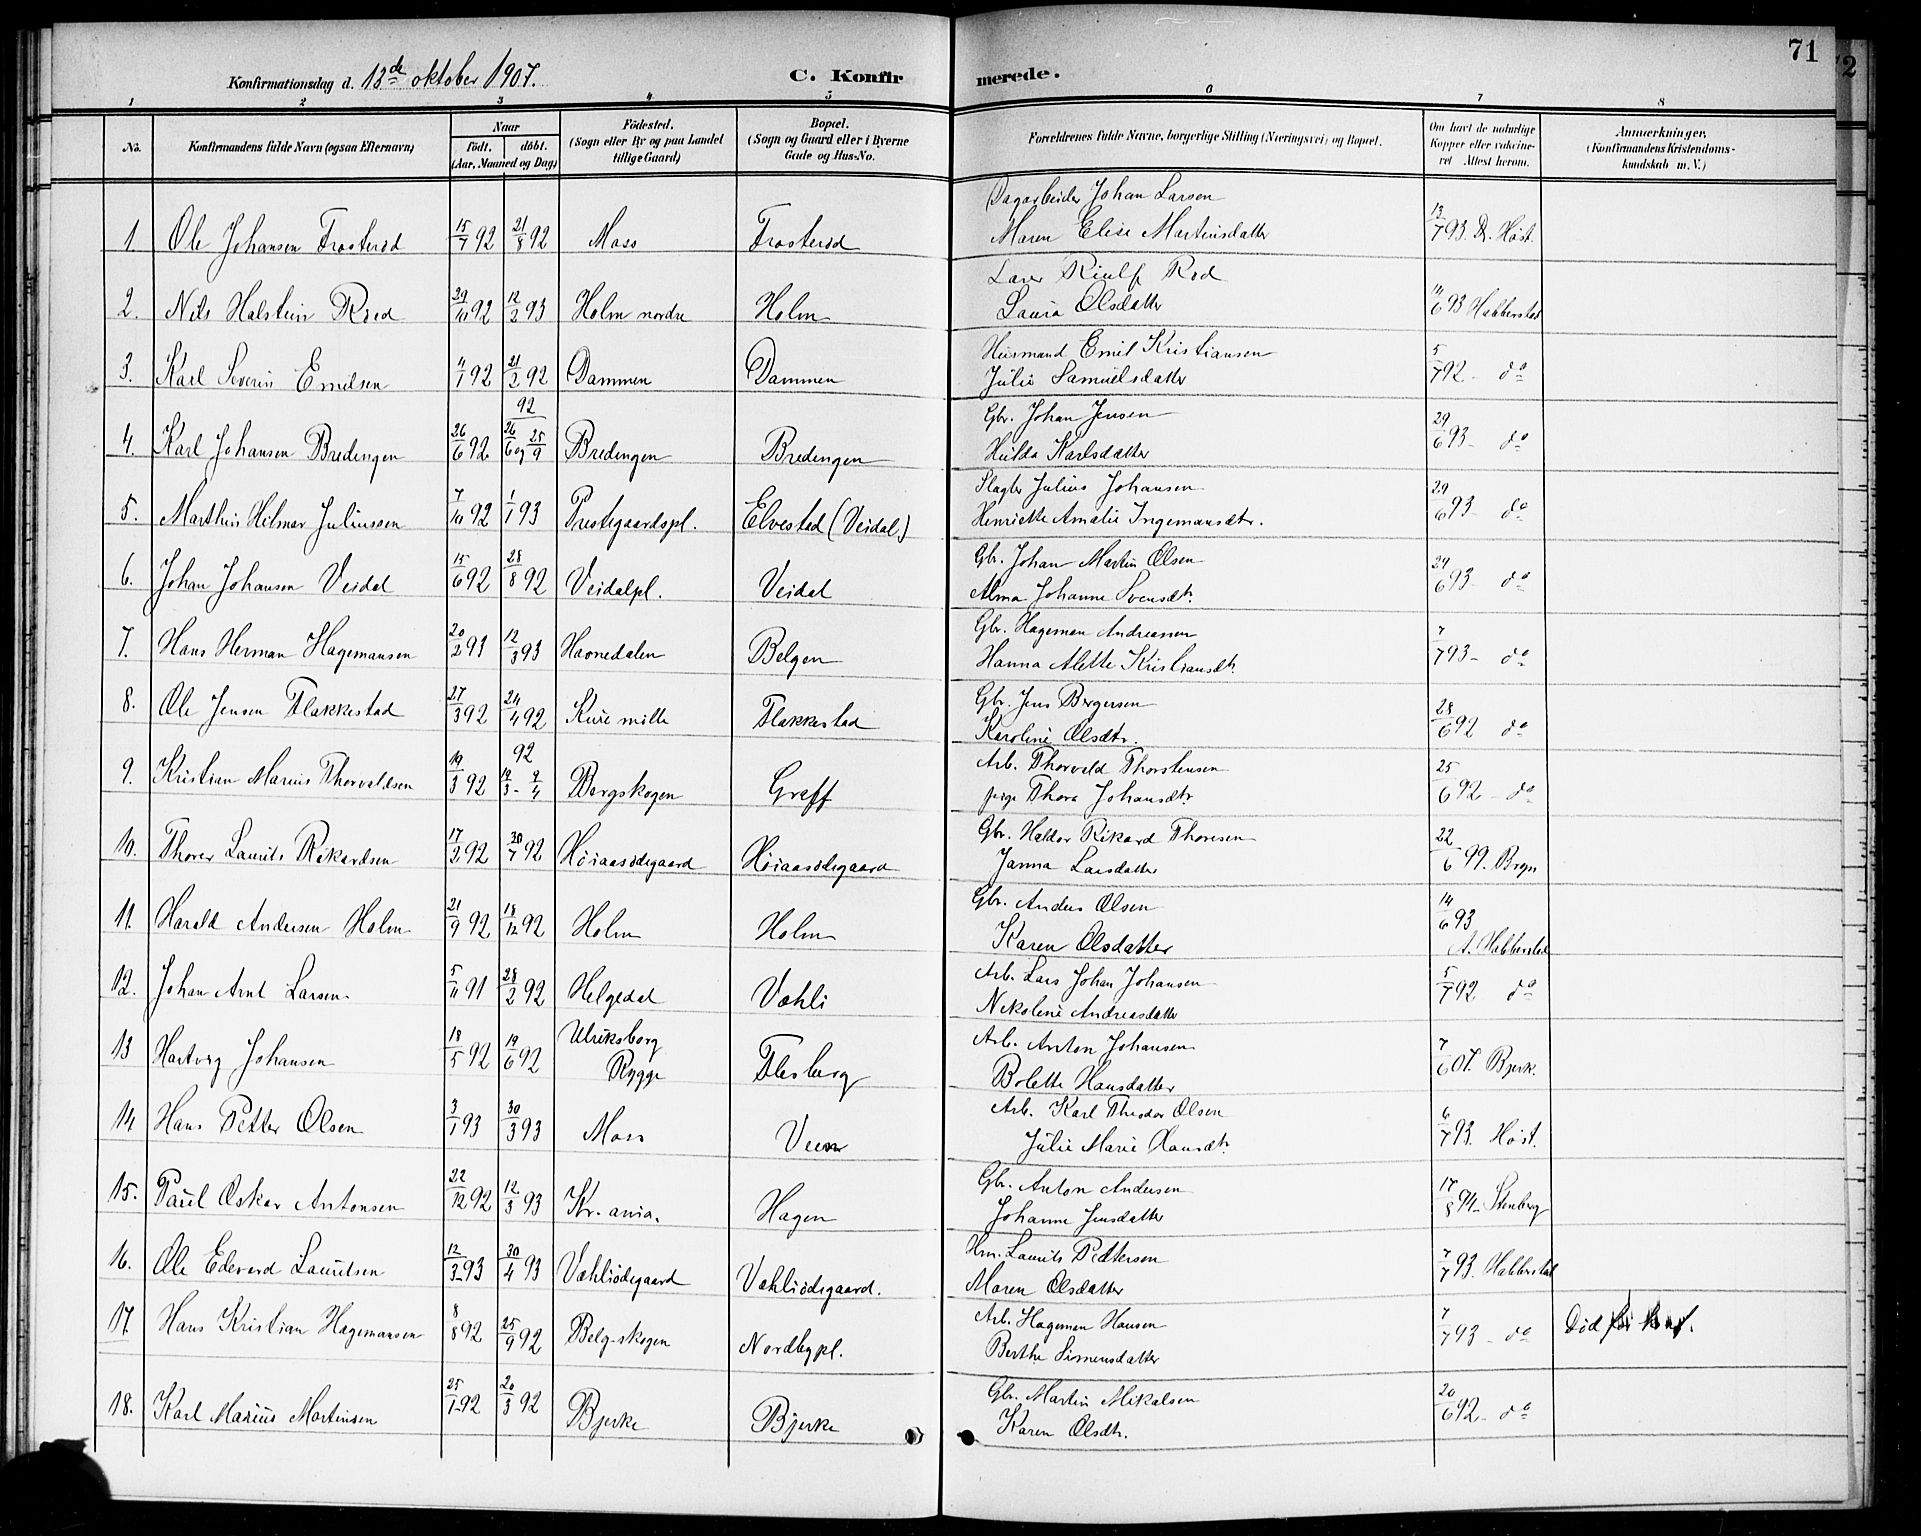 71
Konfirmationsdag d. 13de oktober 1907.
C. Konfir
merede.
1 2 3 4 5 6 7 8
No.
Konfirmandens fulde Navn (ogsaa Efternavn)
Naar
födt. döbt.
(Aar, Maaned og Dag)
Födested.
(Sogn eller By og paa Landet
tillige Gaard)
Bopæl.
(Sogn og Gaard eller i Byerne
Gade og Hus-No.
Forældrenes fulde Navne, borgerlige Stilling (Næringsvei) og Bopæl.
Om havt de naturlige
Kopper eller vakcine-
ret Attest herom.
Anmærkninger.
(Konfirmandens Kristendoms-
kundskab m. V.)
Dagarbeider Johan Larsen
1. Ole Johansen Frosterød 15/7 92 21/8 92 Moss Frosterød Maren Elise Martinsdatter 13/7 93. Dr. Høst.
Rød
2. Nils Halstein Rød 29/10 92 12/2 93 Holm nordre Holm Laura Olsdatter 14/6 93 Habberstad
Husmand Emil Kristiansen
3. Karl Severin Emilsen 4/1 92 21/2 92 Dammen Dammen Julie Samuelsdatter 5/7 92 - do
92
Gbr. Johan Jensen
4. Karl Johansen Bredengen 26/6 92 26/6 og 25/9 Bredengen Bredengen Hulda Karlsdatter 29/6 93 - do
Slagter Julius Johansen
5. Marthin Hilmar Juliussen 7/10 92 1/1 93 Prestegaardspl. Elvestad (Veidal) Henriette Amalie Ingemansdtr. 29/6 93 - do
Gbr. Johan Martin Olsen
6. Johan Johansen Veidal 15/6 92 28/8 92 Veidalpl. Veidal Alma Johanne Svensdtr. 29/6 93 - do
Gbr. Hageman Andreassen
7. Hans Herman Hagemansen 20/2 93 12/3 93 Havnedalen Belgen Hanna Alette Kristiansdtr. 7/7 93 - do
Gbr. Jens Bergersen
8. Ole Jensen Flakkestad 27/3 92 24/4 92 Kure mille Flakkestad Karoline Olsdtr. 28/6 92 do
92
Arb. Thorvald Thorstensen
9. Kristian Marius Thorvaldsen 19/3 92 19/3 - 9/4 Bergskogen Greff pige Thora Johansdtr 25/6 92 - do
Gbr. Haldor Rikard Thoresen
10. Thorer Laurits Rikardsen 17/2 92 30/7 92 Høiaasødegaard Høiaasødegaard Janna Larsdatter 22/6 99. Bryn
Gbr. Anders Olsen
11. Harald Andersen Holm 21/9 92 18/12 92 Holm Holm Karen Olsdatter 14/6 93
A. Habberstad
Arb. Lars Johan Johansen
12. Johan Arnt Larsen 5/11 91 28/2 92 Helgedal Vahli Nikoline Andreasdatter 5/7 92 do
Ulriksborg
Arb. Anton Johansen
13 Hartvig Johansen 18/5 92 19/6 92 Rygge Flesberg Bolette Hansdatter 7/6 07. Bjerk.
Arb. Karl Theodor Olsen
14 Hans Petter Olsen 3/1 93 30/3 93 Moss Veen Julie Marie Hansdtr. 6/7 93. Høst.
Gbr. Anton Andersen
15. Paul Oskar Antonsen 22/12 92 12/3 93 Kr.ania. Hagen Johanne Jensdatter 17/8 94 - Stenberg
Hm. Laurits Pettersen
16. Ole Edvard Lauritsen 12/3 93 30/4 93 Vahliødegaard Vahliødegaard. Maren Olsdatter 7/7 93. Habberstad
Arb. Hageman Hansen
17. Hans Kristian Hagemansen 8/8 92 25/9 92 Belg-skogen Nordbypl. Berthe Simensdatter 7/7 93 - do Død
Gbr. Martin Mikalsen
18. Karl Marius Martinsen 25/1 92 20/3 92 Bjerke Bjerke Karen Olsdtr. 20/6 92 - do